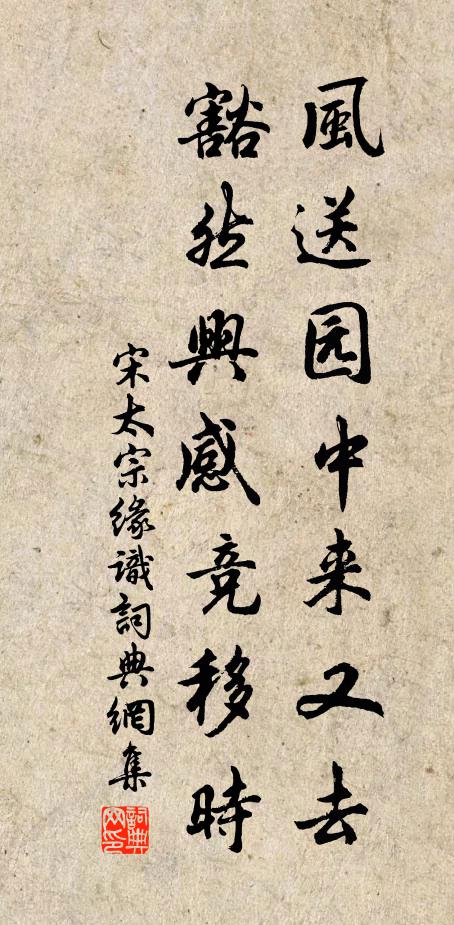 風送园中来又去
豁然興感竞移時
宋太宗緣識詞典網集
詞典网印